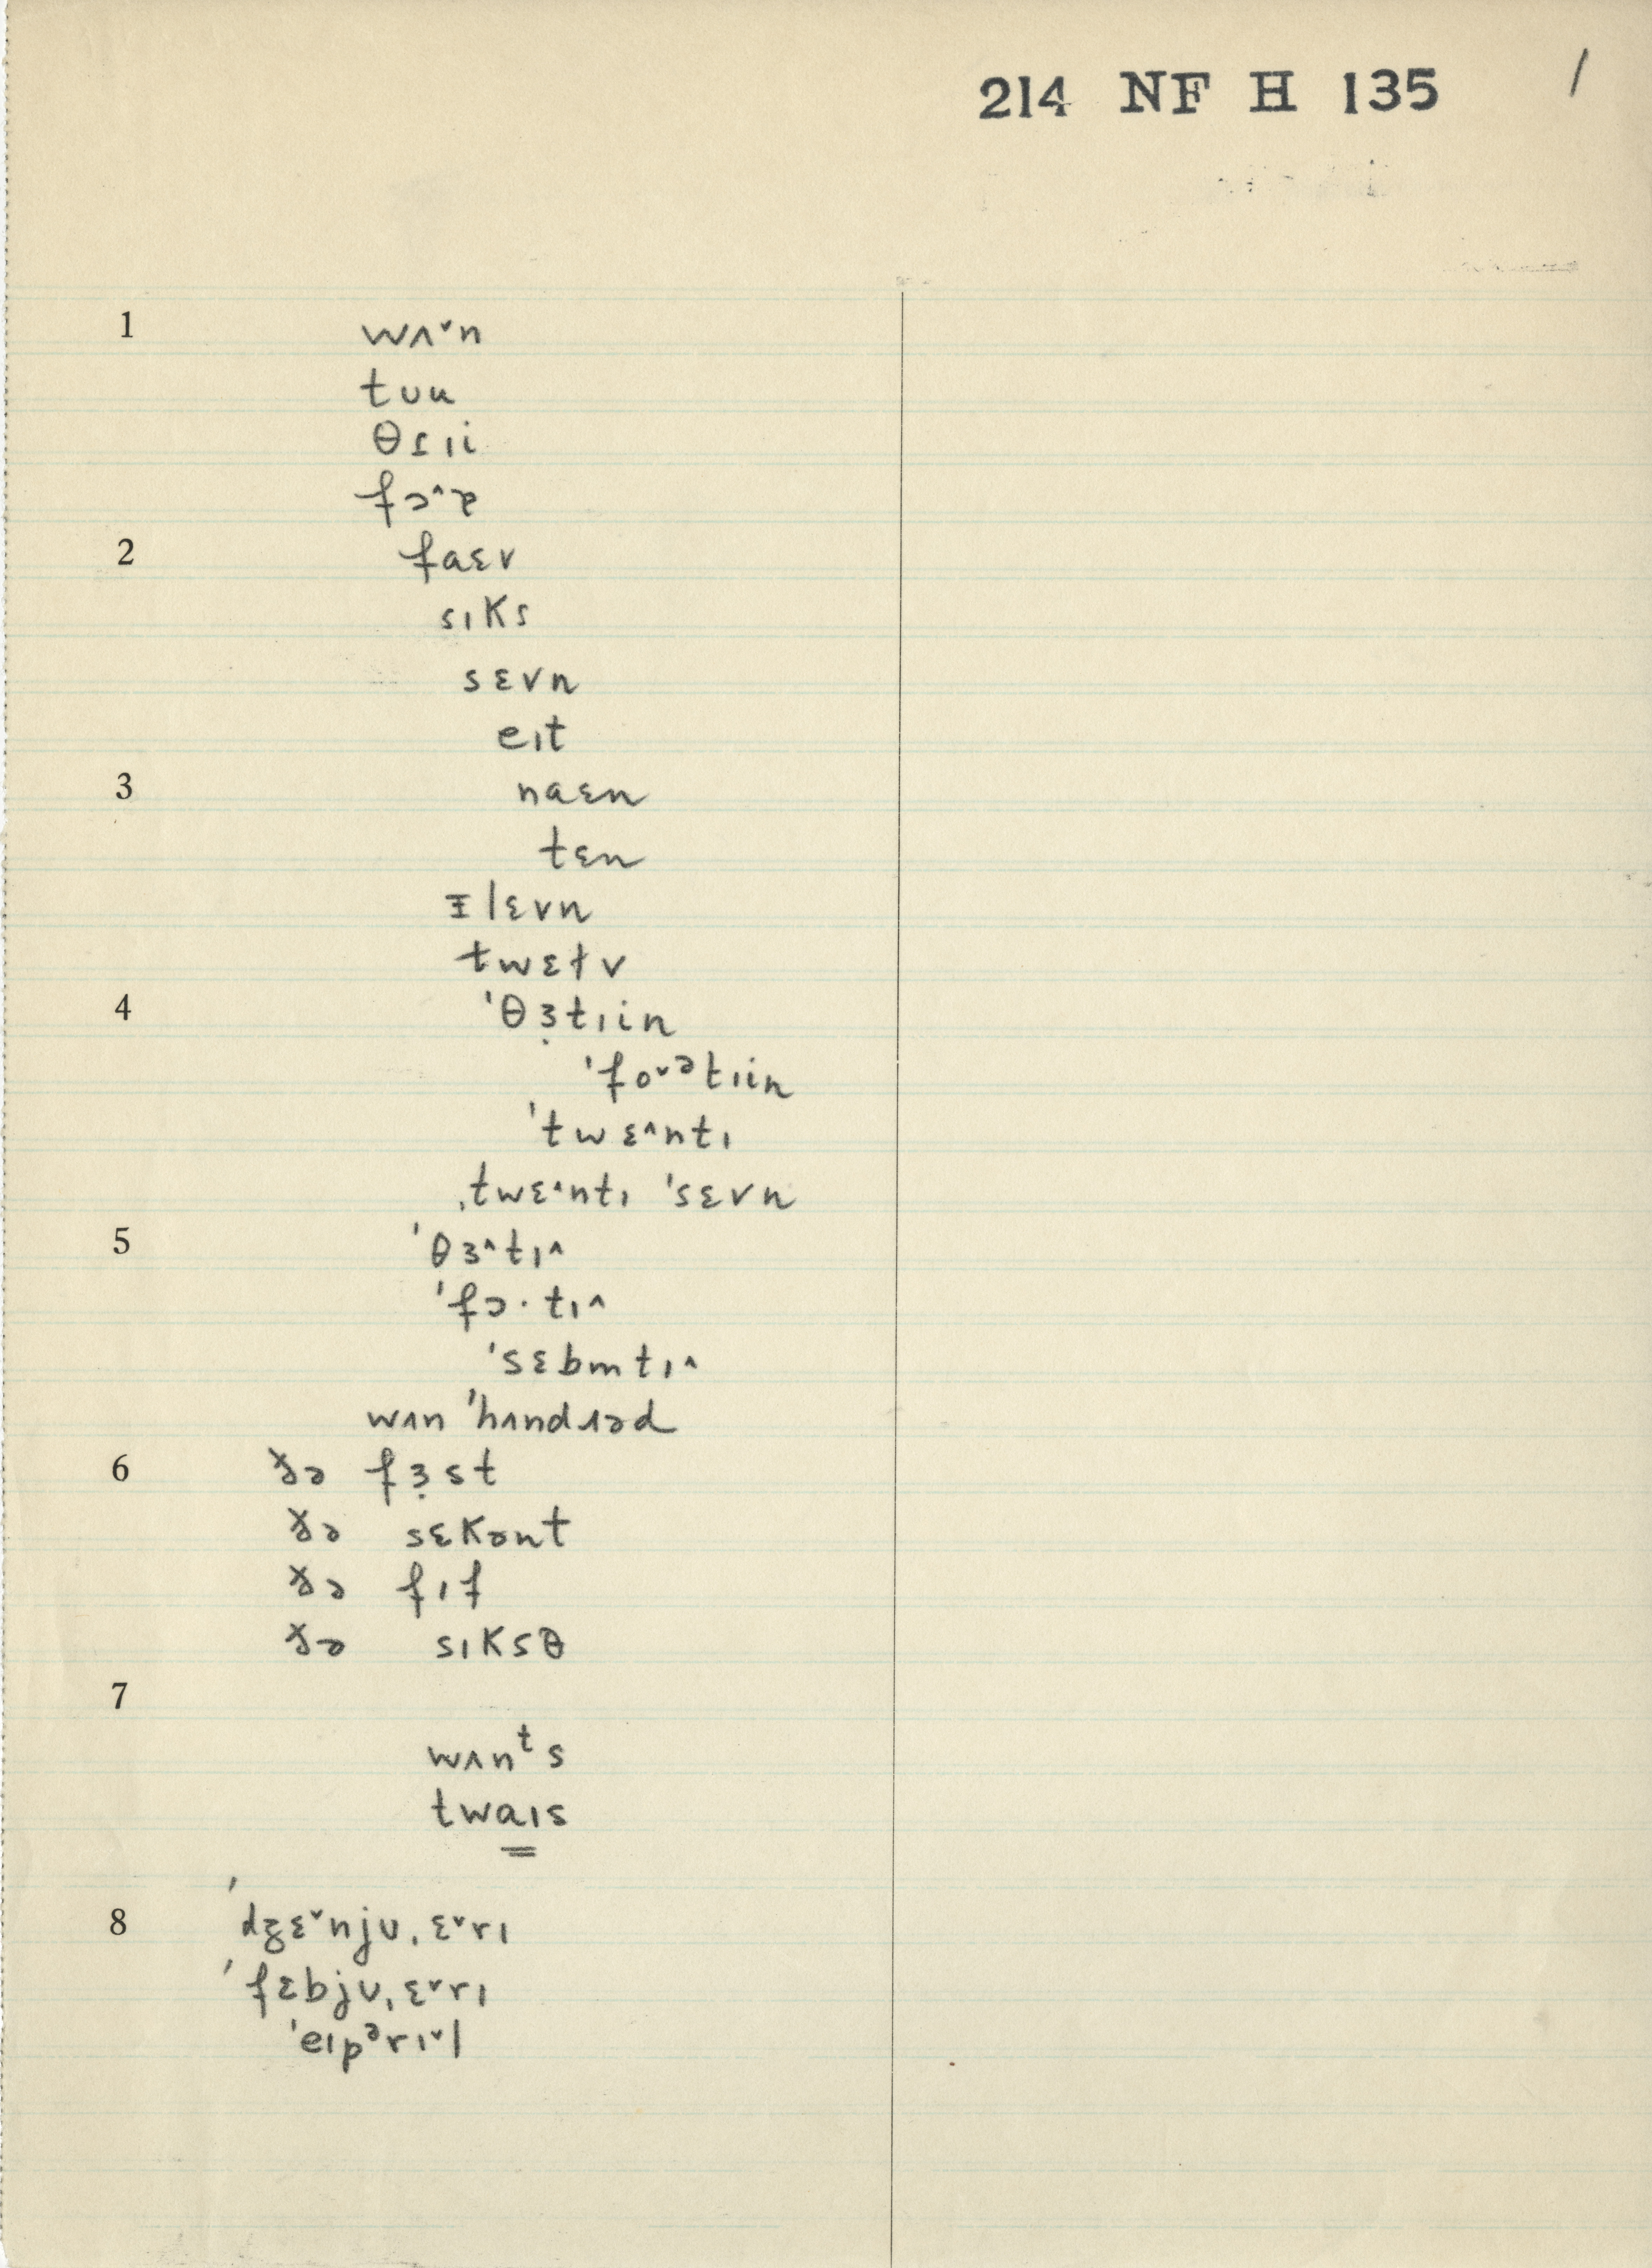 214 NF H 135 /
1 wʌ˅n
tʊu
θɹɪi
fɔ˄ɚ
2 faɛv
sɪks
sɛvn
eɪt
3 naɛn
tɛn
ɪlɛvn
twɛɫv
4 ˈθɜ̣tɪin
ˈfo˅ᵊtɪin
ˈtwɛ˄ntɪ
ˌtwɛ˄ntɪ ˈsɛvn
5 ˈθɜ˄tɪ˄
ˈfɔ·tɪ˄
ˈsɛbmtɪ˄
wʌn ˈhʌndɹəd
6 ðə fɜ̣st
ðə sɛkənt
ðə fɪf
ðə sɪksθ
7
wʌnᵗs
twa̳ɪs
8 ˈdʒɛ˅njʊˌɛ˅rɪ
ˈfɛbjʊˌɛ˅rɪ
ˈeɪpᵊrɪ˅l